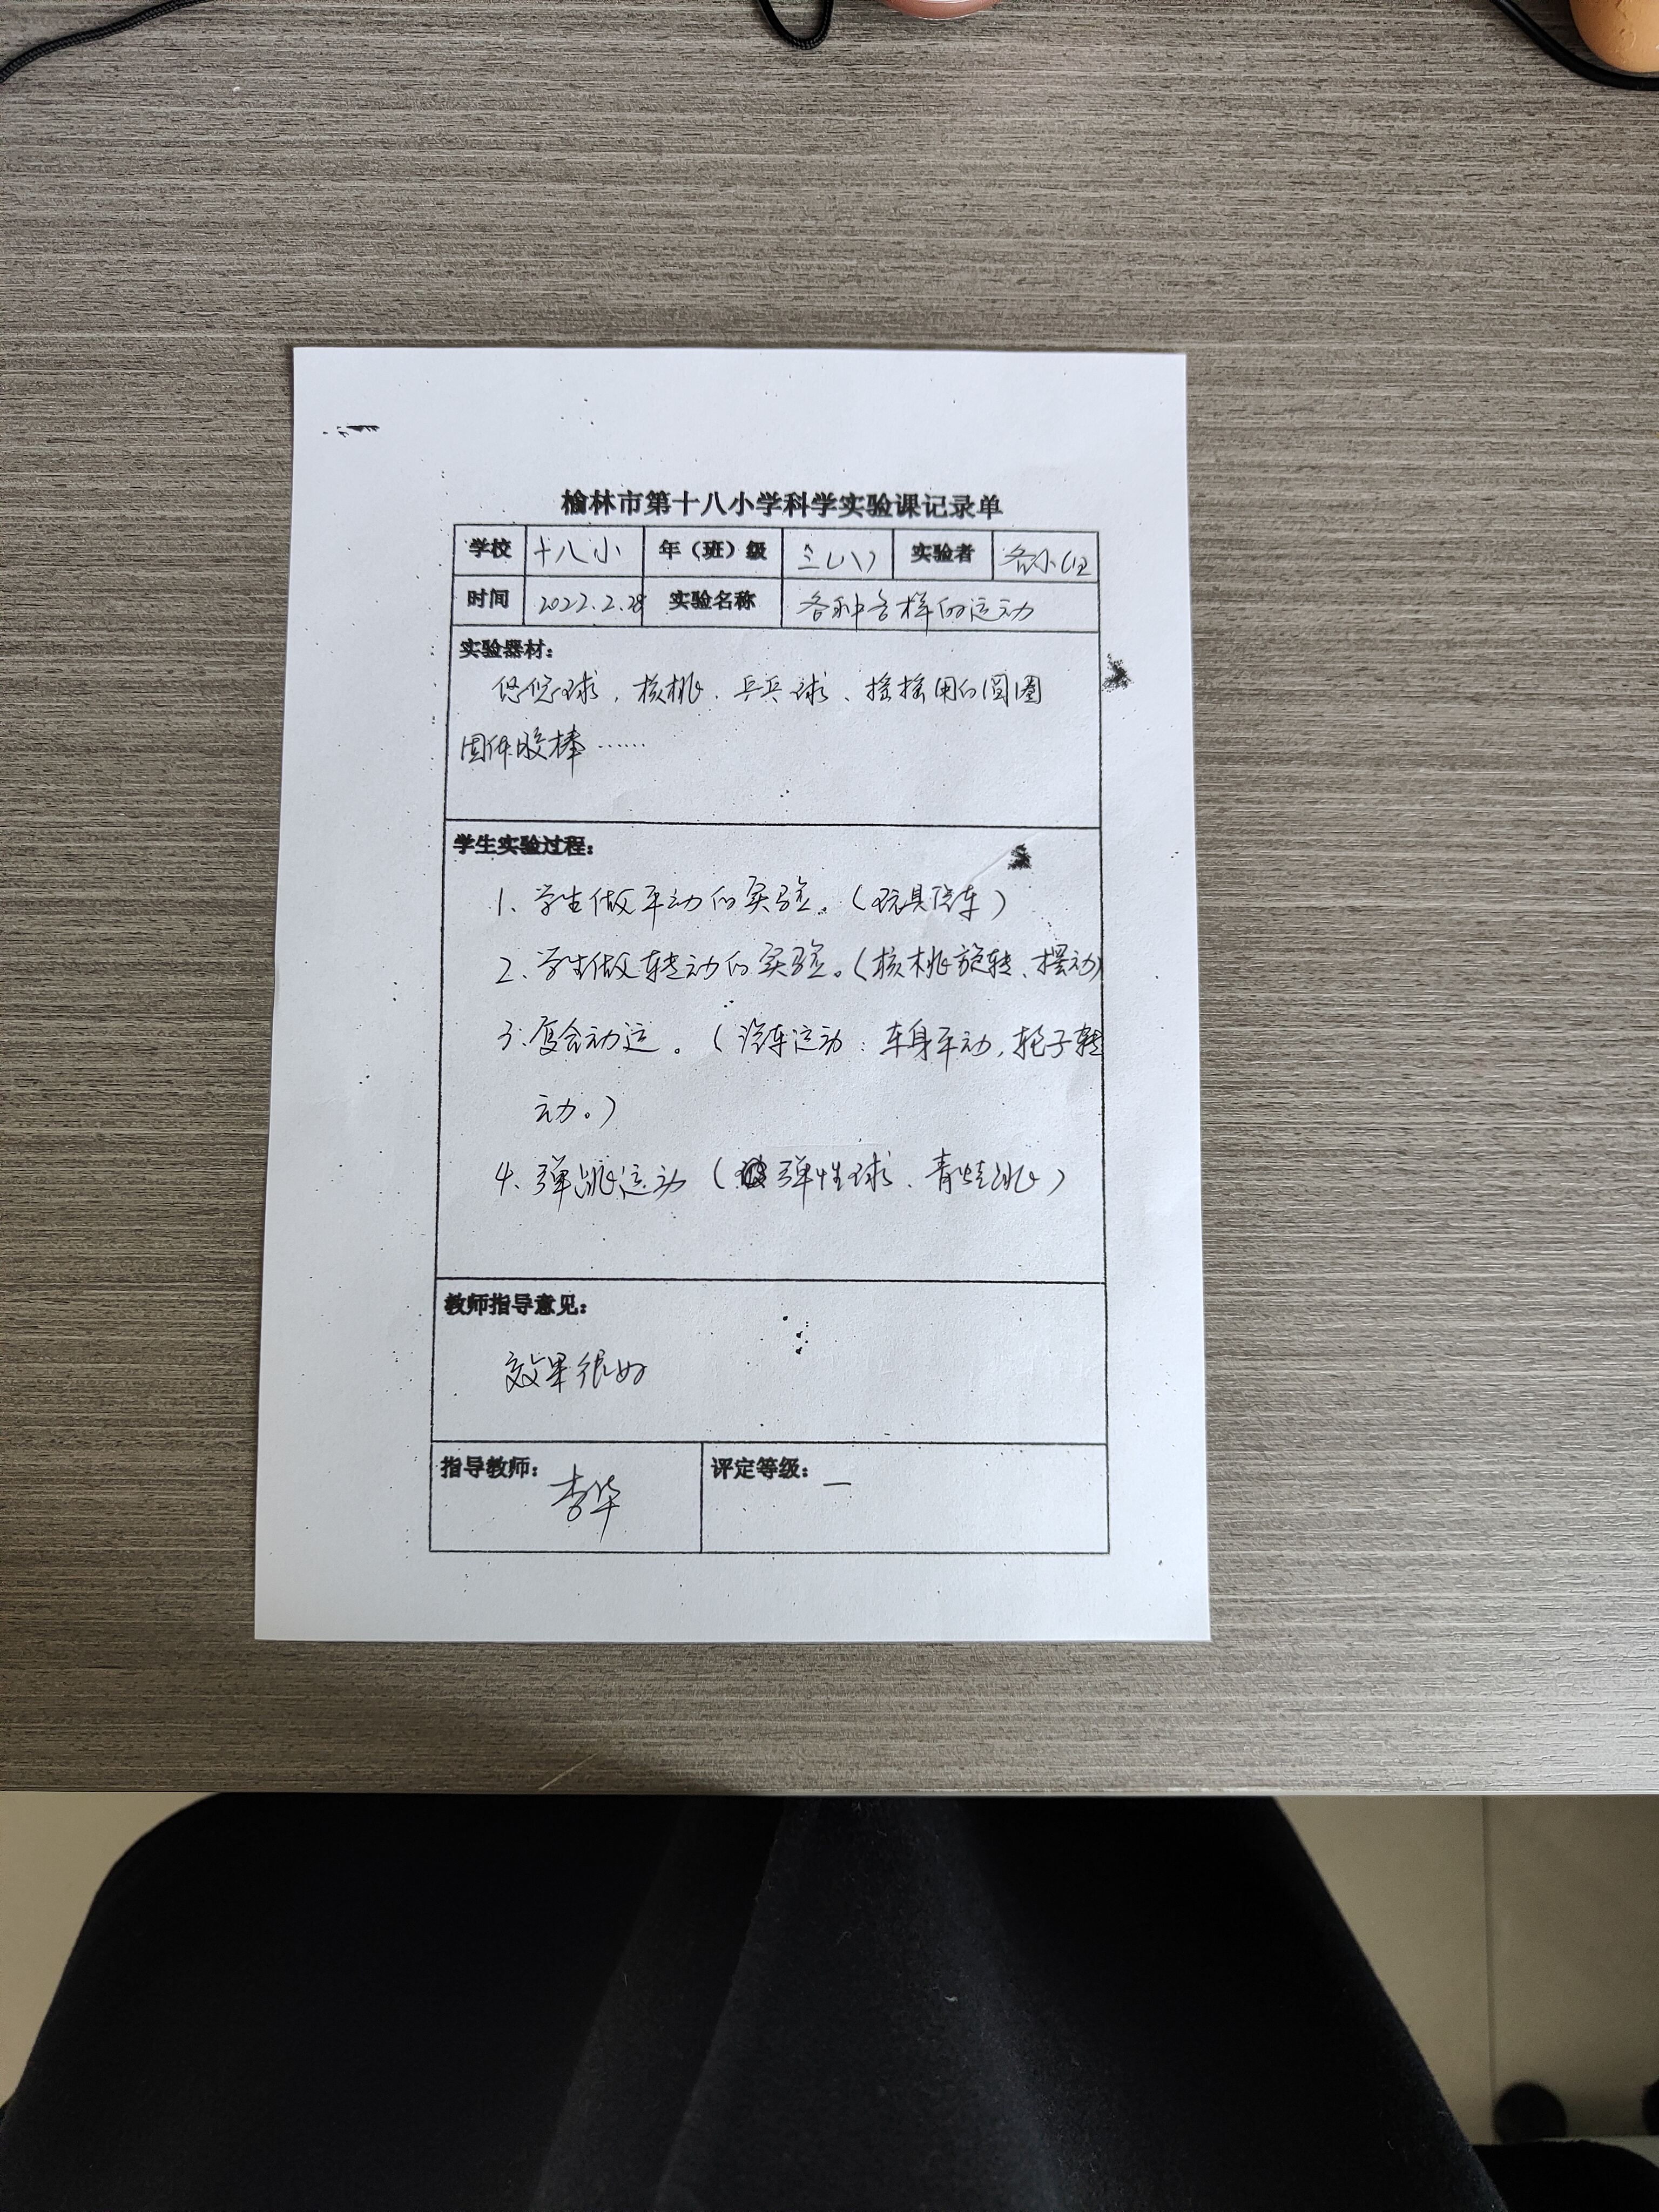 榆林市第十八小学科学实验课记录单
学校 十八小 年（班）级 三（八） 实验者 各小组
时间 2022.2.28 实验名称 各种各样的运动
实验器材：
悠悠球、核桃、乒乓球、摇摇用的圆圈
固体胶棒……
学生实验过程：
1、学生做平动的实验。（玩具汽车）
2、学生做转动的实验。（核桃旋转、摆动）
3、复合动运。（汽车运动：车身平动，轮子转
动。）
4、弹跳运动（弹性球、青蛙跳）
教师指导意见：
效果很好
指导教师：李华 评定等级：一